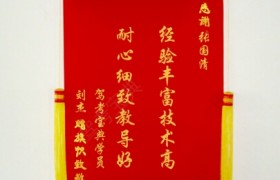 感谢张国清
经验丰富技术高
耐心细致教导好
驾考宝典学员
刘杰